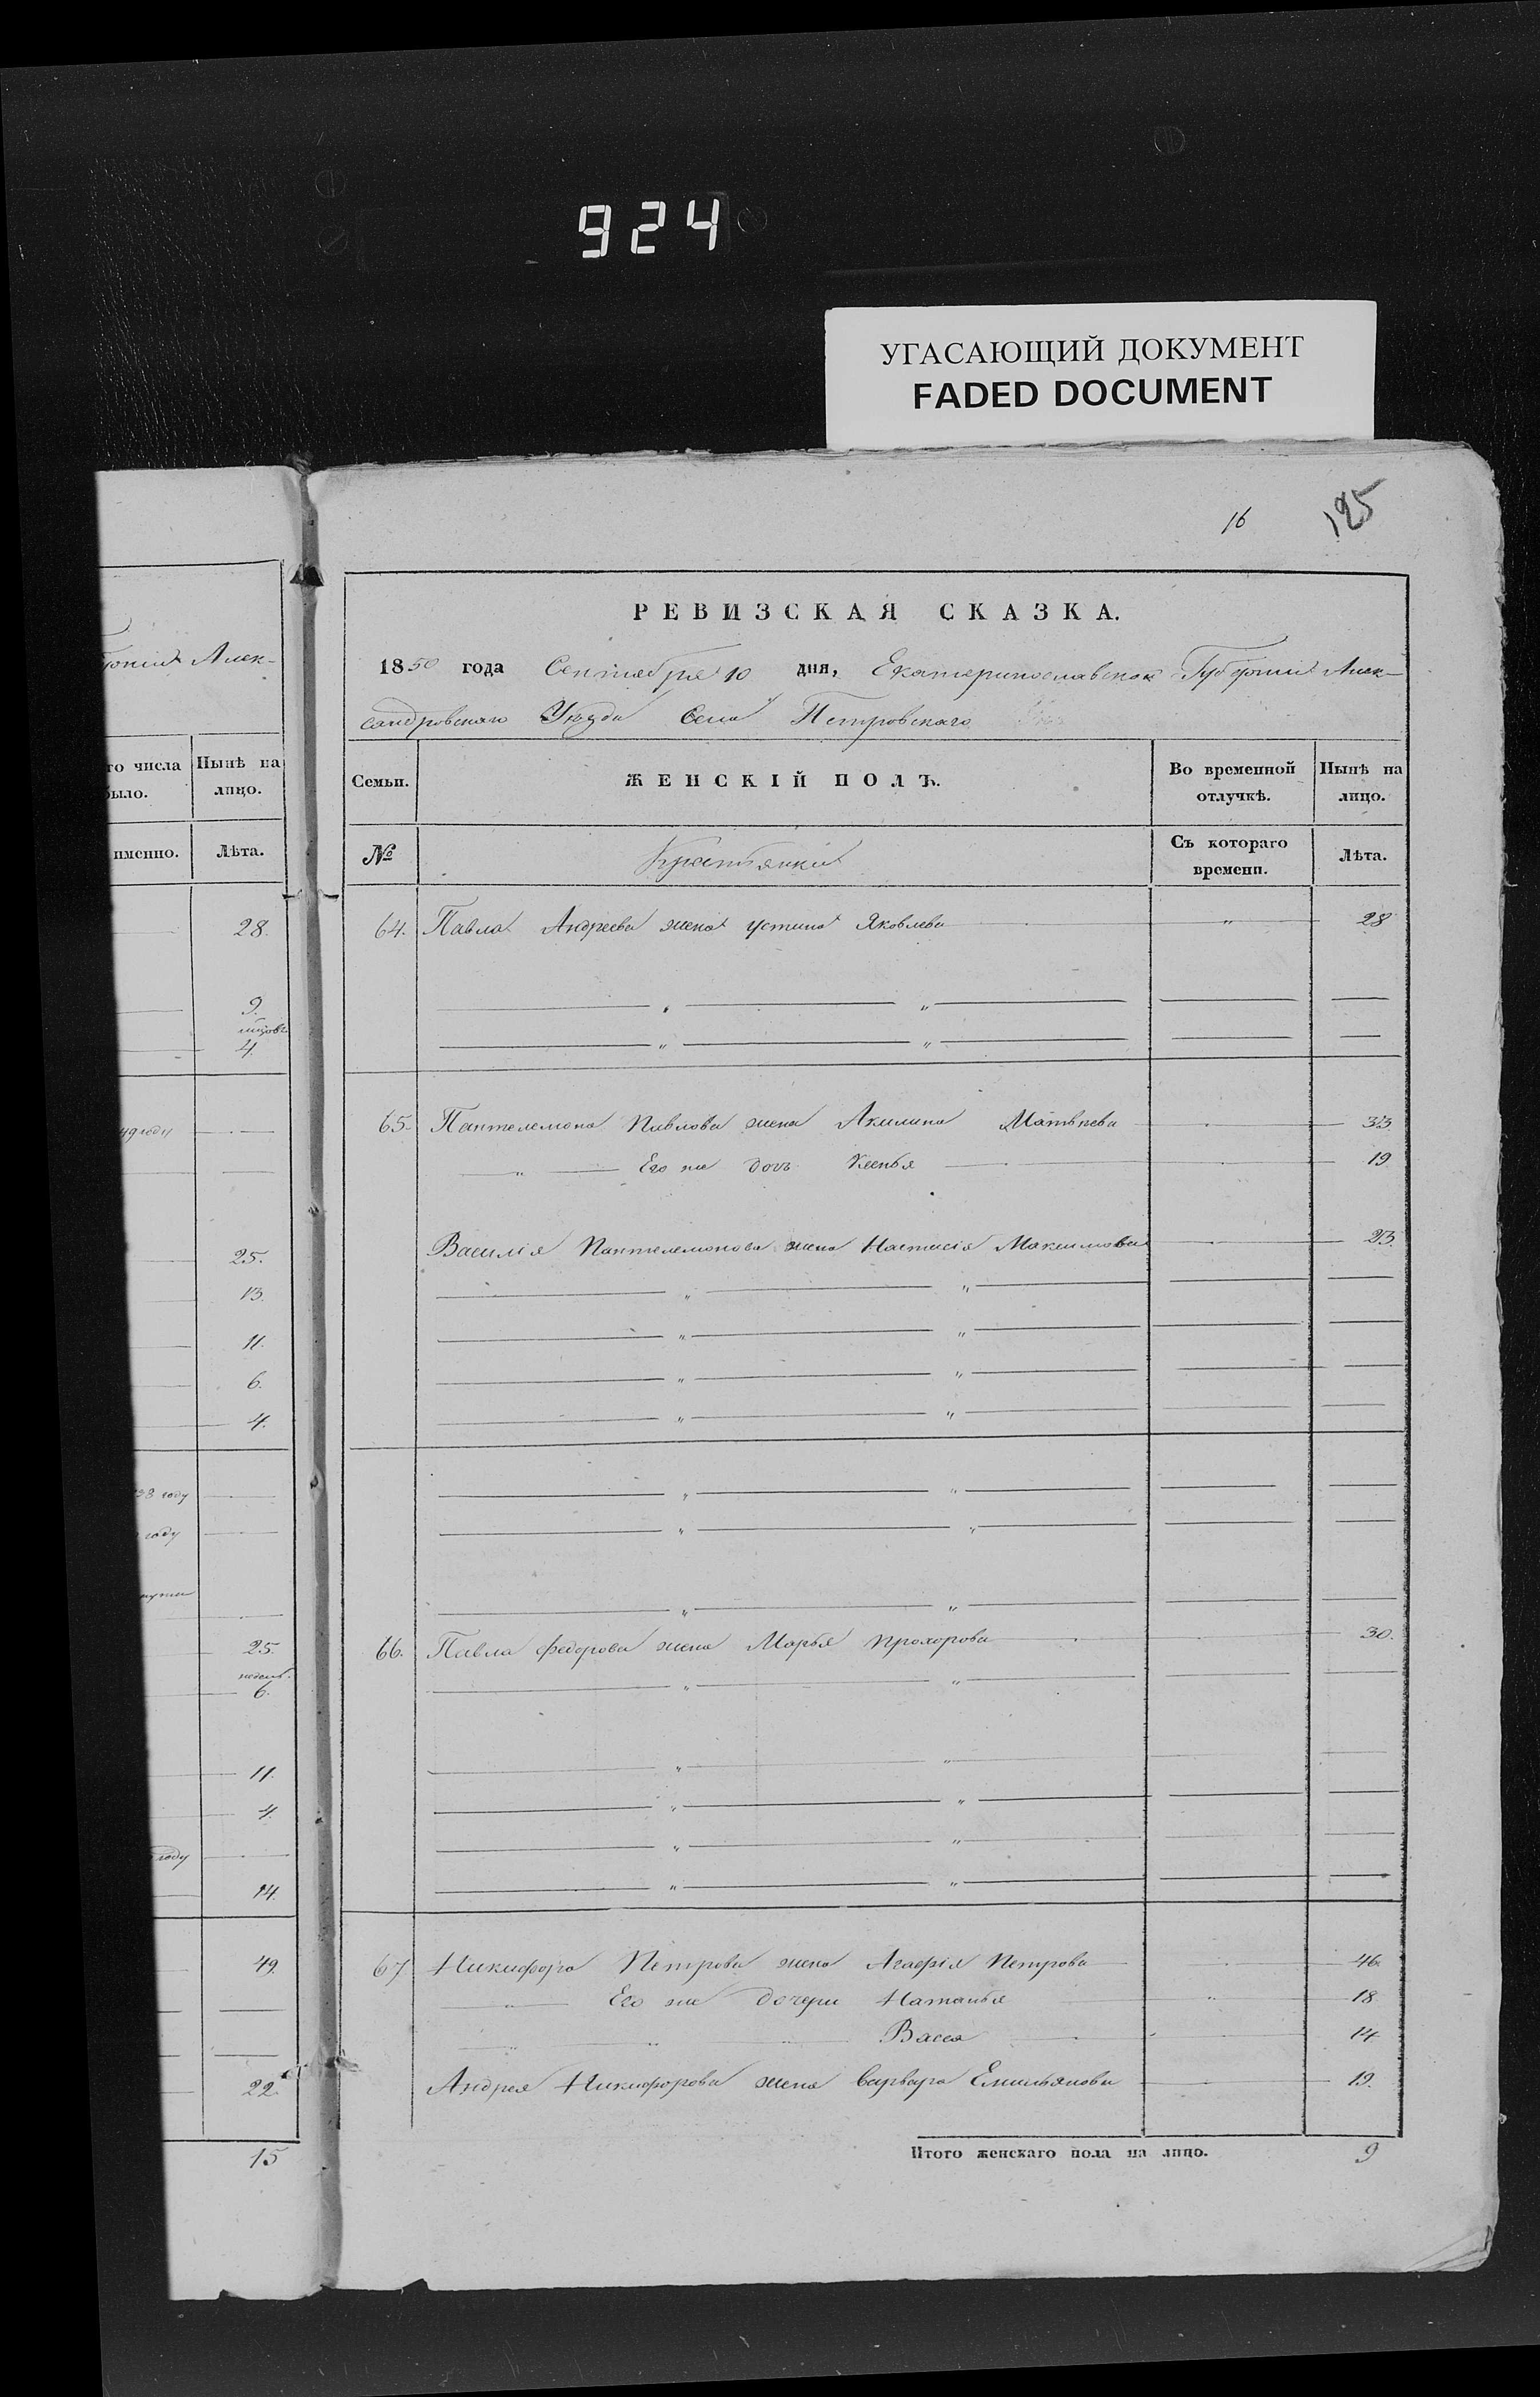 924
УГАСАЮЩИЙ ДОКУМЕНТ
FADED DOCUMENT
16
125
РЕВИЗСКАЯ СКАЗКА.
1850 года Сентября 10 дня, Екатеринославской Губерніи Алек-
сандровскаго Уѣзда Села Петровскаго
Семьи.
ЖЕНСКІЙ ПОЛЪ.
Во временной отлучкѣ.
Нынѣ на лицо.
№
Крестьянки
Съ котораго времени.
Лѣта.
64. Павла Андреева жена Устина Яковлева " 28
65. Пантелемона Павлова жена Акилина Матвѣева 33
" Его же дочь Ксенья 19
Василія Пантелемонова жена Настасія Максимова 23.
66. Павла Федорова жена Марья Прохорова 30.
67 Никифора Петрова жена Агафія Петрова 46
" Его же дочери Наталья " 18
Васса 14
Андрея Никифорова жена Варвара Емильянова 19.
Итого женскаго пола на лицо. 9
губерніи Алек-
го числа
было.
Нынѣ на
лицо.
именно.
Лѣта.
28.
9.
4.
49 году
25.
13.
11.
6.
4.
38 году
году
25.
недель.
6.
11.
4.
году
14.
49.
22.
15